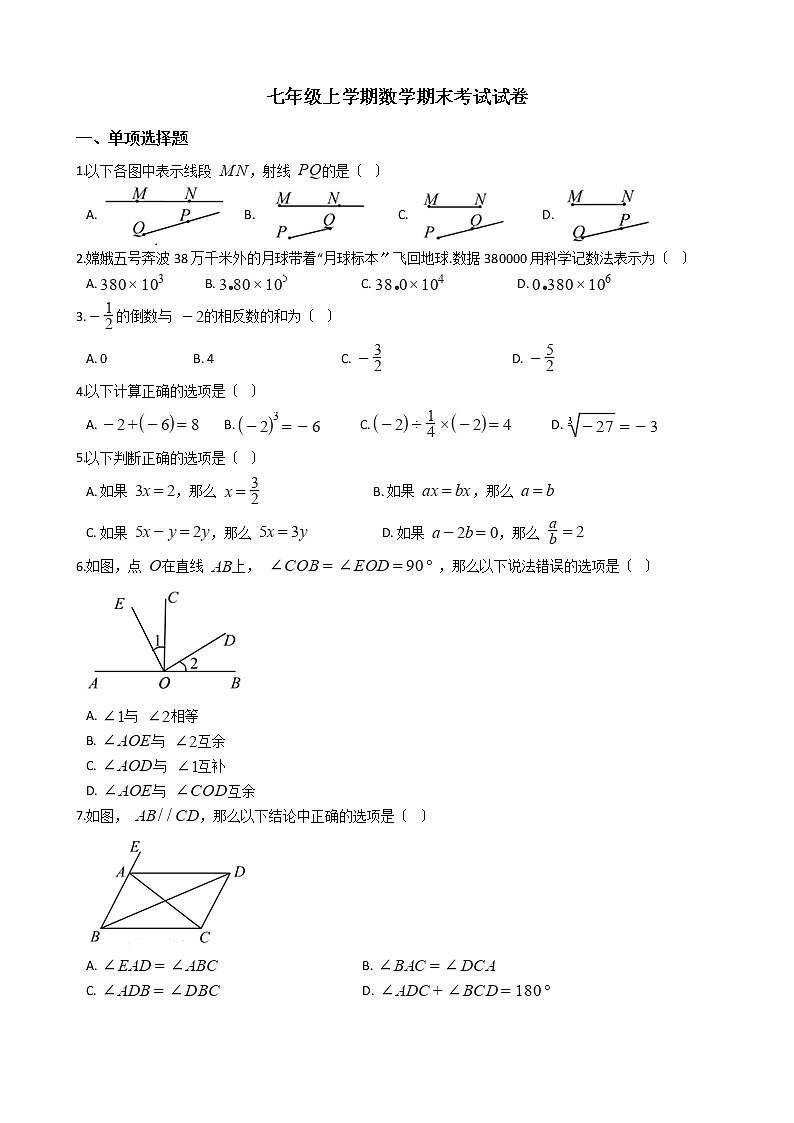 七年级上学期数学期末考试试卷
一、单项选择题
1.以下各图中表示线段 MN，射线 PQ的是〔 〕
A. M N P Q B. M N Q P C. M N Q P D. M N P Q
2.嫦娥五号奔波 38 万千米外的月球带着“月球标本”飞回地球.数据 380000 用科学记数法表示为〔 〕
A. 380×10³ B. 3•80×10⁵ C. 38•0×10⁴ D. 0•380×10⁶
3. −1/2 的倒数与 −2的相反数的和为〔 〕
A. 0 B. 4 C. −3/2 D. −5/2
4.以下计算正确的选项是〔 〕
A. −2+(−6)=8 B. (−2)³=−6 C. (−2)÷1/4×(−2)=4 D. ∛−27=−3
5.以下判断正确的选项是〔 〕
A. 如果 3x=2，那么 x=3/2 B. 如果 ax=bx，那么 a=b
C. 如果 5x−y=2y，那么 5x=3y D. 如果 a−2b=0，那么 a/b=2
6.如图，点 O在直线 AB上， ∠COB=∠EOD=90°，那么以下说法错误的选项是〔 〕
E C
1 D
2
A O B
A. ∠1与 ∠2相等
B. ∠AOE与 ∠2互余
C. ∠AOD与 ∠1互补
D. ∠AOE与 ∠COD互余
7.如图， AB//CD，那么以下结论中正确的选项是〔 〕
E
A D
B C
A. ∠EAD=∠ABC B. ∠BAC=∠DCA
C. ∠ADB=∠DBC D. ∠ADC+∠BCD=180°